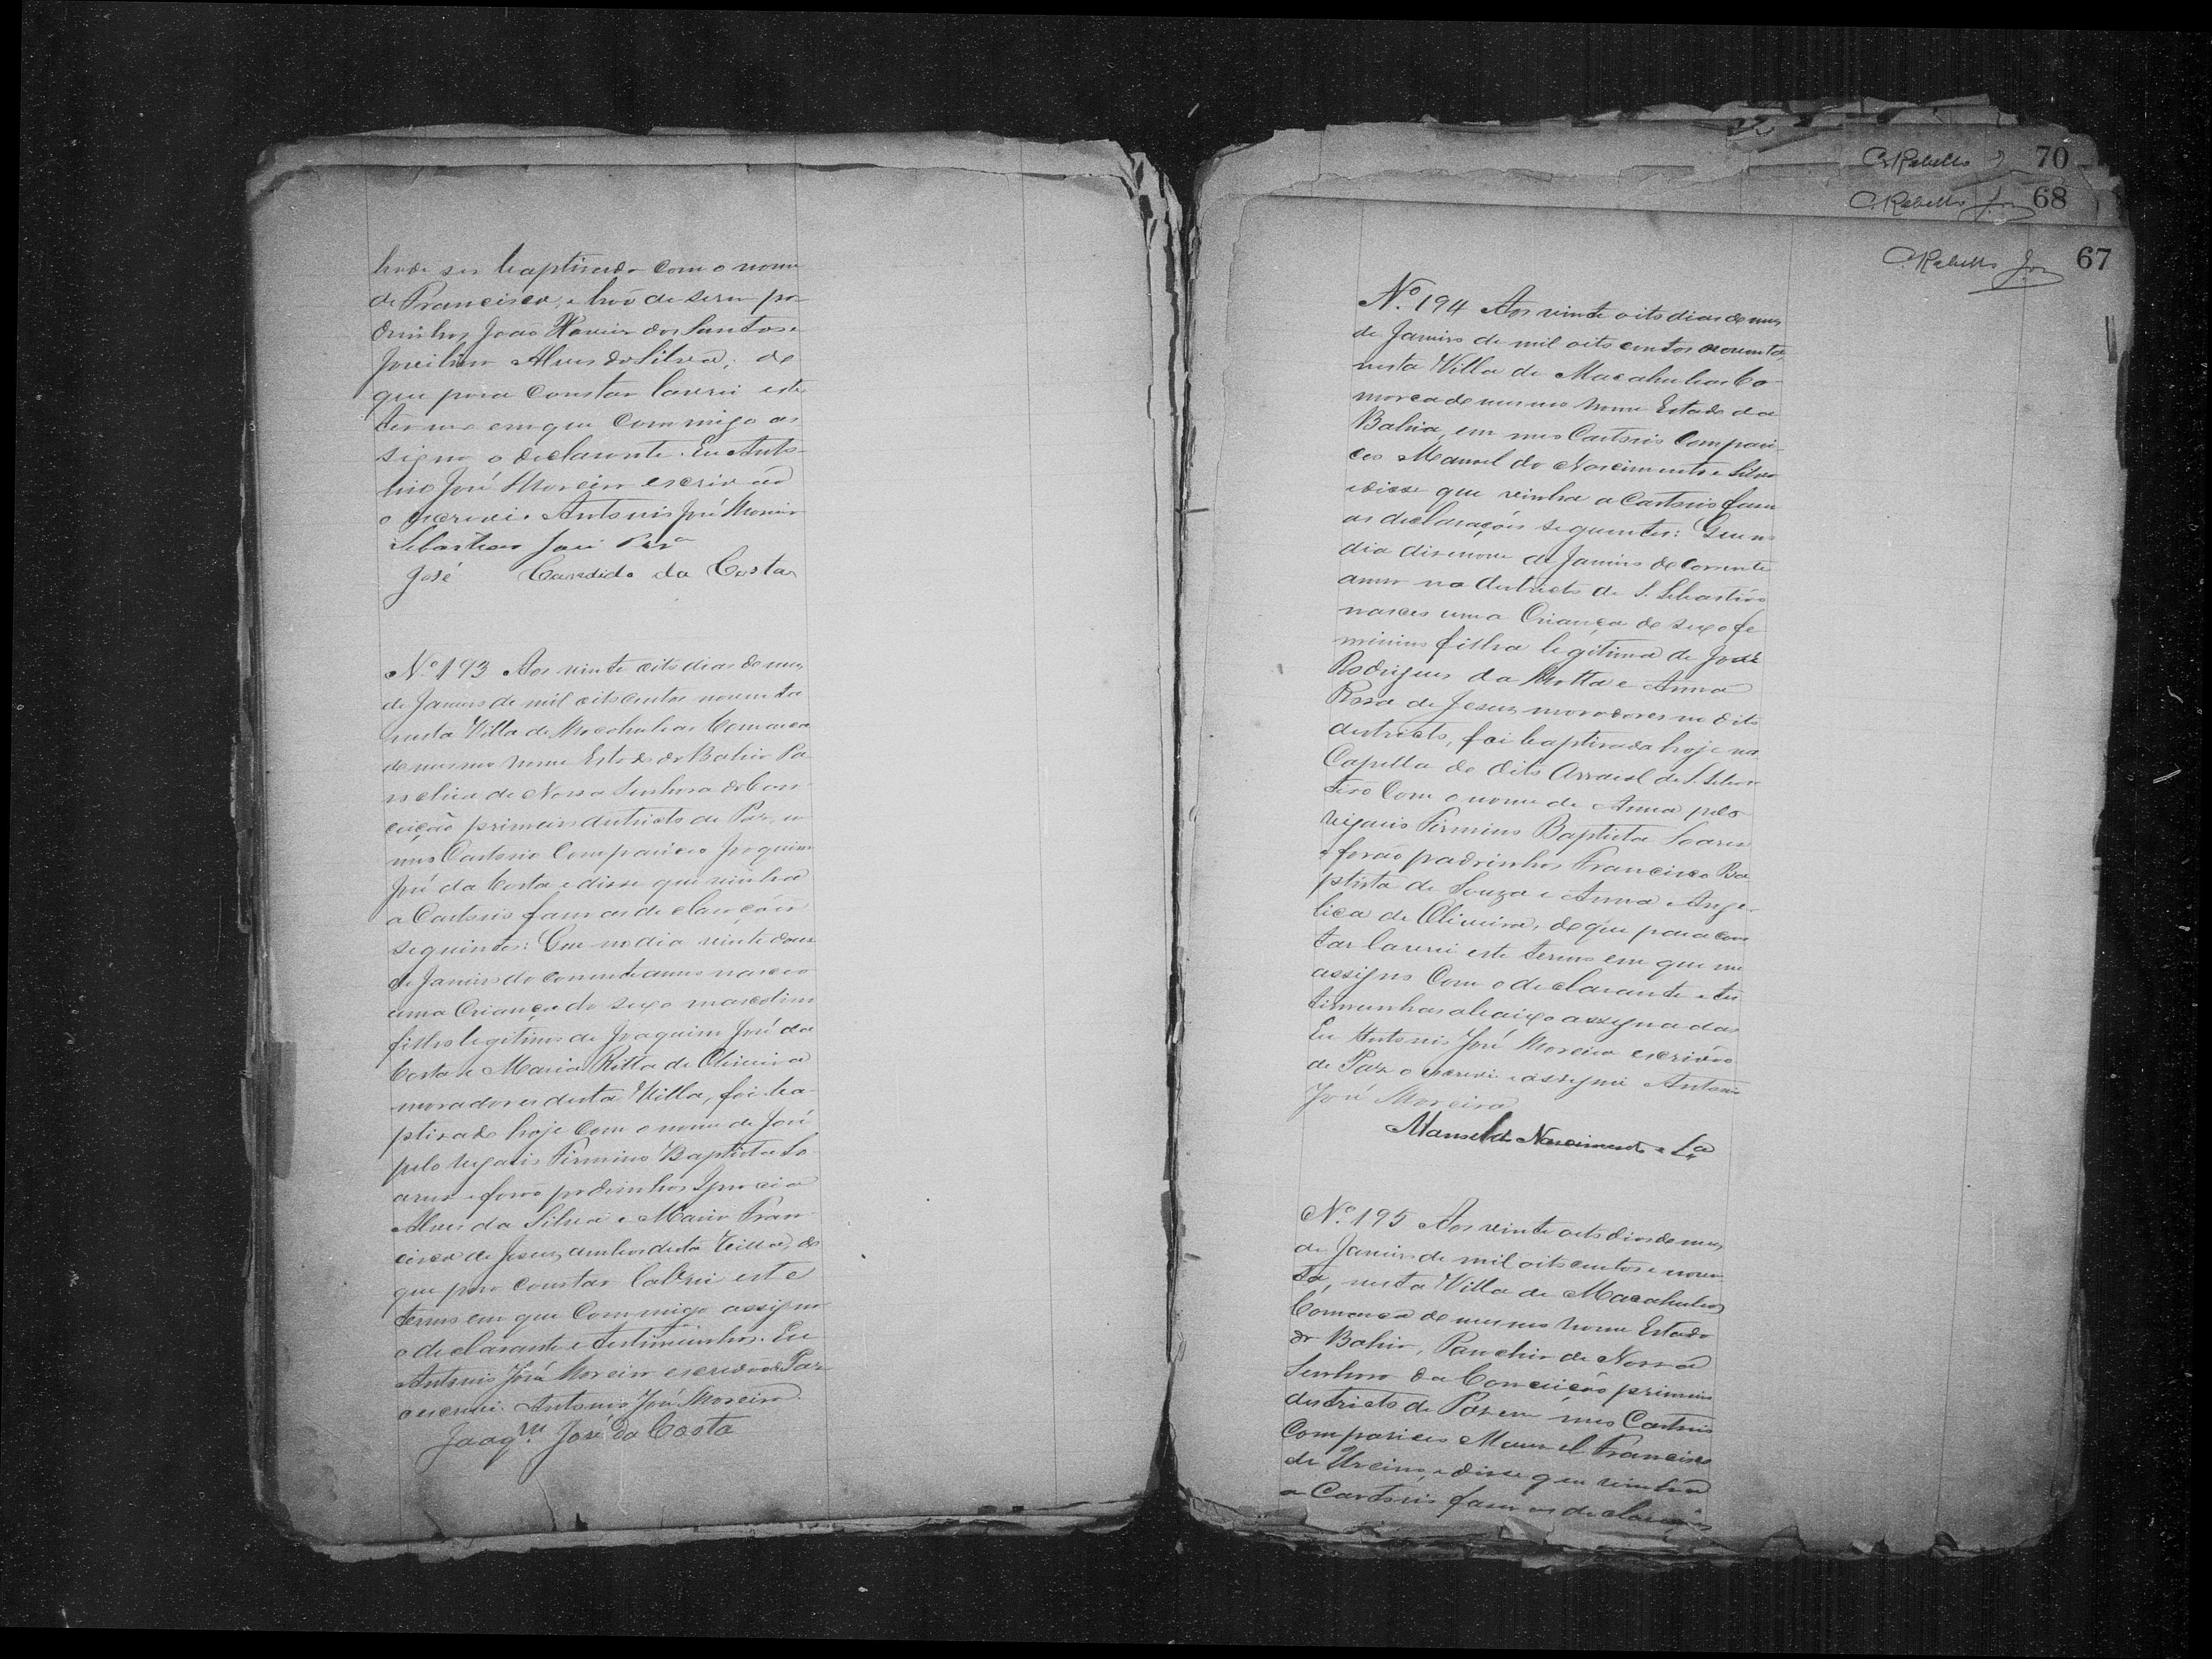 hade ser baptisado com o nome
de Francisco, e hão de serem pa-
drinhos João Xavier dos Santos e
Alves da Silva; de
que para constar lavrei este
termo em que commigo as
signa o declarante. Eu Anto-
nio José Moreira escrivão
o escrevi. Antonio José Moreira
Sebastião José
José Candido da Costa
Nº 193 Aos vinte oito dias do mez
de Janeiro de mil oitocentos noventa
nesta Villa de Macahubas Comarca
do mesmo nome Estado da Bahia Pa
rochia de Nossa Senhora da Con
ceição primeiro districto de Paz, em
meo Cartorio compareceo Joaquim
José da Costa e disse que vinha
a Cartorio faser as declarações
seguintes: Que no dia vinte dous
de Janeiro do corrente anno nasceo
uma Criança do sexo mascolino
filho legitimo de Joaquim José da
Costa e Maria Ritta de Oliveira
moradores desta Villa, foi ba-
ptisado hoje com o nome de José
pelo Vigario Firmino Baptista So
ares e forão padrinhos Ignocio
Alves da Silva e Maria Fran
cisca de Jesus, ambos desta Villa, do
que para constar lavrei este
termo em que commigo assigna
o declarante e testimunhas. Eu
Antonio José Moreira escrivão de Paz
o escrevi. Antonio José Moreira.
Joaqm José da Costa
C. Rabello 70
C. Rabello Jor 68
C. Rabello Jor 67
Nº 194 Aos vinte oito dias do mez
de Janeiro de mil oito centos noventa,
nesta Villa de Macahubas Co-
marca do mesmo nome Estado da
Bahia, em meo Cartorio compare-
ceo Manoel do Nascimento e Silva
e disse que vinha a Cartorio faser
as declarações seguentes: Que no
dia desenove de Janeiro do corrente
anno no destricto de S. Sebastião
nasceo uma Criança do sexo fe
minino filha legitima de José
Rodrigues da Motta e Anna
Rosa de Jesus moradores no dito
destricto, foi baptisada hoje na
Capella do dito Arraial de S. Sebas
tião com o nome de Anna pelo
Vigario Firmino Baptista Soares
e forão padrinhos Francisco Ba
ptista de Souza e Anna Ange-
lica de Oliveira, do que para cons
tar lavrei este termo em que me
assigno com o declarante e tes
timunhas abaixo assignadas
Eu Antonio José Moreira escrivão
de Paz o escrevi e assignei Antonio
José Moreira
Manoel do Nascimento e Sa
Nº 195 Aos vinte oito dias do mez
de Janeiro de mil oito centos e noven
ta, nesta Villa de Macahubas
Comarca do mesmo nome Estado
da Bahia, Parochia de Nossa
Senhora da Conceição primeiro
destricto de Paz em meo Cartorio
compareceo Manoel Francisco
de Ursino, e disse que vinha
a Cartorio faser as declarações